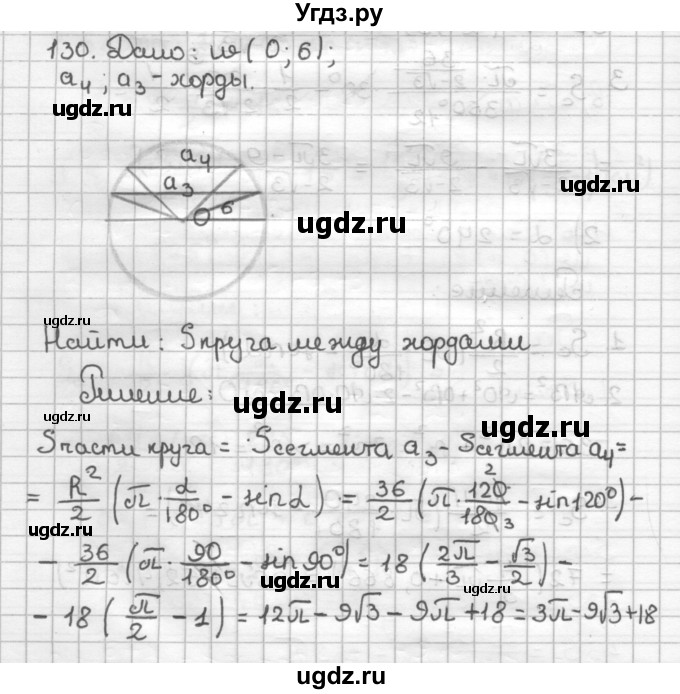 Угдз.ру
130. Дано: w(0; 6);
a₄; a₃ - хорды.
a₄
a₃
O 6
ugdz.ru
ugdz.ru
ugdz.ru
ugdz.ru
Найти: Sкруга между хордами
ugdz.ru
Решение:
ugdz.ru
ugdz.ru
Sчасти круга = Sсегмента a₃ - Sсегмента a₄ =
= R²/2 (π · α/180° - sinα) = 36/2 (π · 120²/180₃ - sin120°) -
ugdz.ru
ugdz.ru
- 36/2 (π · 90/180° - sin90°) = 18 (2π/3 - √3/2) -
ugdz.ru
ugdz.ru
- 18 (π/2 - 1) = 12π - 9√3 - 9π + 18 = 3π - 9√3 + 18
ugdz.ru
ugdz.ru